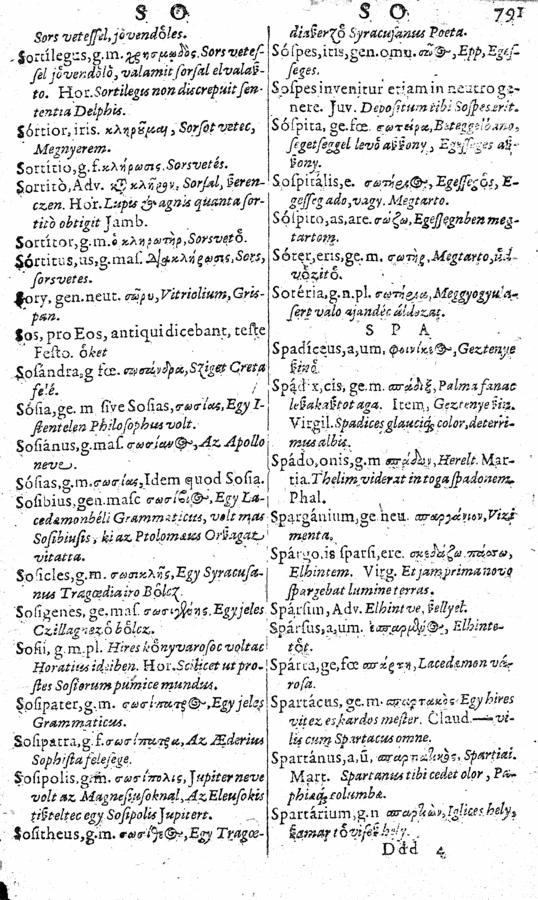 S O. S O. 791
Sors vetessel, jövendőles.
Sortílegus, g.m. χρησμῳδὸς, Sors vetes-
sel jövendőlő, valamit sorsal elvalaß-
to. Hor. Sortilegus non discrepuit sen-
tentia Delphis.
Sórtior, iris. κληρῦμαι, Sorsot vetec,
Megnyerem.
Sortitio, g.f. κλήρωσις. Sorsvetés.
Sortitò, Adv. κτ κλῆρον, Sorsal, ßeren-
czen. Hor. Lupis & agnis quanta sor-
titò obtigit Jamb.
Sortítor, g.m. ὁ κληρωτὴρ, Sorsvető.
Sórtitus, us, g.mas. κλήρωσις, Sors,
sorsvetes.
Sory, gen. neut. σῶρυ, Vitriolium, Gris-
pan.
Sos, pro Eos, antiqui dicebant, teste
Festo. őket
Sosándra, g fœ. σωσάνδρα, Sziget Creta
fe'é.
Sósia, ge. m sive Sosias, σωσίας, Egy I-
stentelen Philosophus volt.
Sosiánus, g.mas. σωσίανος, Az Apollo
neve.
Sósias, g.m. σωσίας, Idem quod Sosia.
Sosíbius, gen. masc σωσίβιος, Egy La-
cedæmonbéli Grammaticus, volt mas
Sosibiusis, ki az Ptolomæus Orßagat
vitatta.
Sosicles, g.m. σωσικλῆς, Egy Syracusa-
nus Tragœdiairo Bőlcz.
Sosígenes, ge. mas. σωσιγένης. Egy jeles
Czillagnező bőlcz.
Sosii, g m.pl. Hires kőnyvarosoc voltac
Horatius ideiben. Hor. Scilicet ut pro-
stes Sosiorum pumice mundus.
Sosípater, g.m. σωσίπατρος, Egy jeles
Grammaticus.
Sosípatra, g.f. σωσίπατρα, Az Æderius
Sophista felesége.
Sosípolis, g.m. σωσίπολις, Jupiter neve
volt az Magnesiusoknal, Az Eleusokis
tißteltec egy Sosipolis Jupitert.
Sositheus, g.m. σωσίθεος, Egy Tragœ-
diaßerző Syracusanus Poeta.
Sóspes, itis, gen. omn. σῶος, Epp, Eges-
seges.
Sospes invenitur etiam in neutro ge-
nere. Juv. Depositum tibi Sospes erit.
Sóspita, ge.fœ. σωτείρα,
segetseggel levő aßßony, Egesseges aß-
ßony.
Sospitális, e. σωτήριος, Egesseges, E-
gesseg ado, vagy. Megtarto.
Sóspito, as, are. σώζω, Egessegnben meg-
tartom.
Sóter, eris, ge. m. σωτὴρ, Megtarto,
Sotéria, g.n.pl. σωτήρια,
sert valo ajandéc áldozat.
S P A
Spadíceus, a, um, φοινίκεος, Geztenye
ßinő.
Spádix, cis, ge.m. σπάδιξ, Palma fanac
leßakaßtot aga. Item, Geztenye ßin.
Virgil. Spadices glaucique, color, deterri-
mus albis.
Spádo, onis, g.m σπάδων, Herelt. Mar-
tia. Thelim viderat in toga spadonem.
Phal.
Spargánium, ge neu. σπαργάνιον, Vizi
menta.
Spárgo, is sparsi, ere. σκεδάζω πάσσω,
Elhintem. Virg. Et jam prima novo
spargebat lumine terras.
Spársim, Adv. Elhintve, ßellyel.
Spársus, a, um. Elhinte-
tőt.
Spárta, ge, fœ σπάρτη, Lacedæmon vá-
rosa.
Spartácus, ge m. σπαρτακὸς Egy hires
vitez es kardos mester. Claud.— vi-
lis cum Spartacus omne.
Spartánus, a, ũ, σπαρτιατικὸς, Spartiai.
Mart. Spartanus tibi cedet olor, Pa-
phiæq; columbæ.
Spartárium, g.n Iglices hely,
Ddd 4